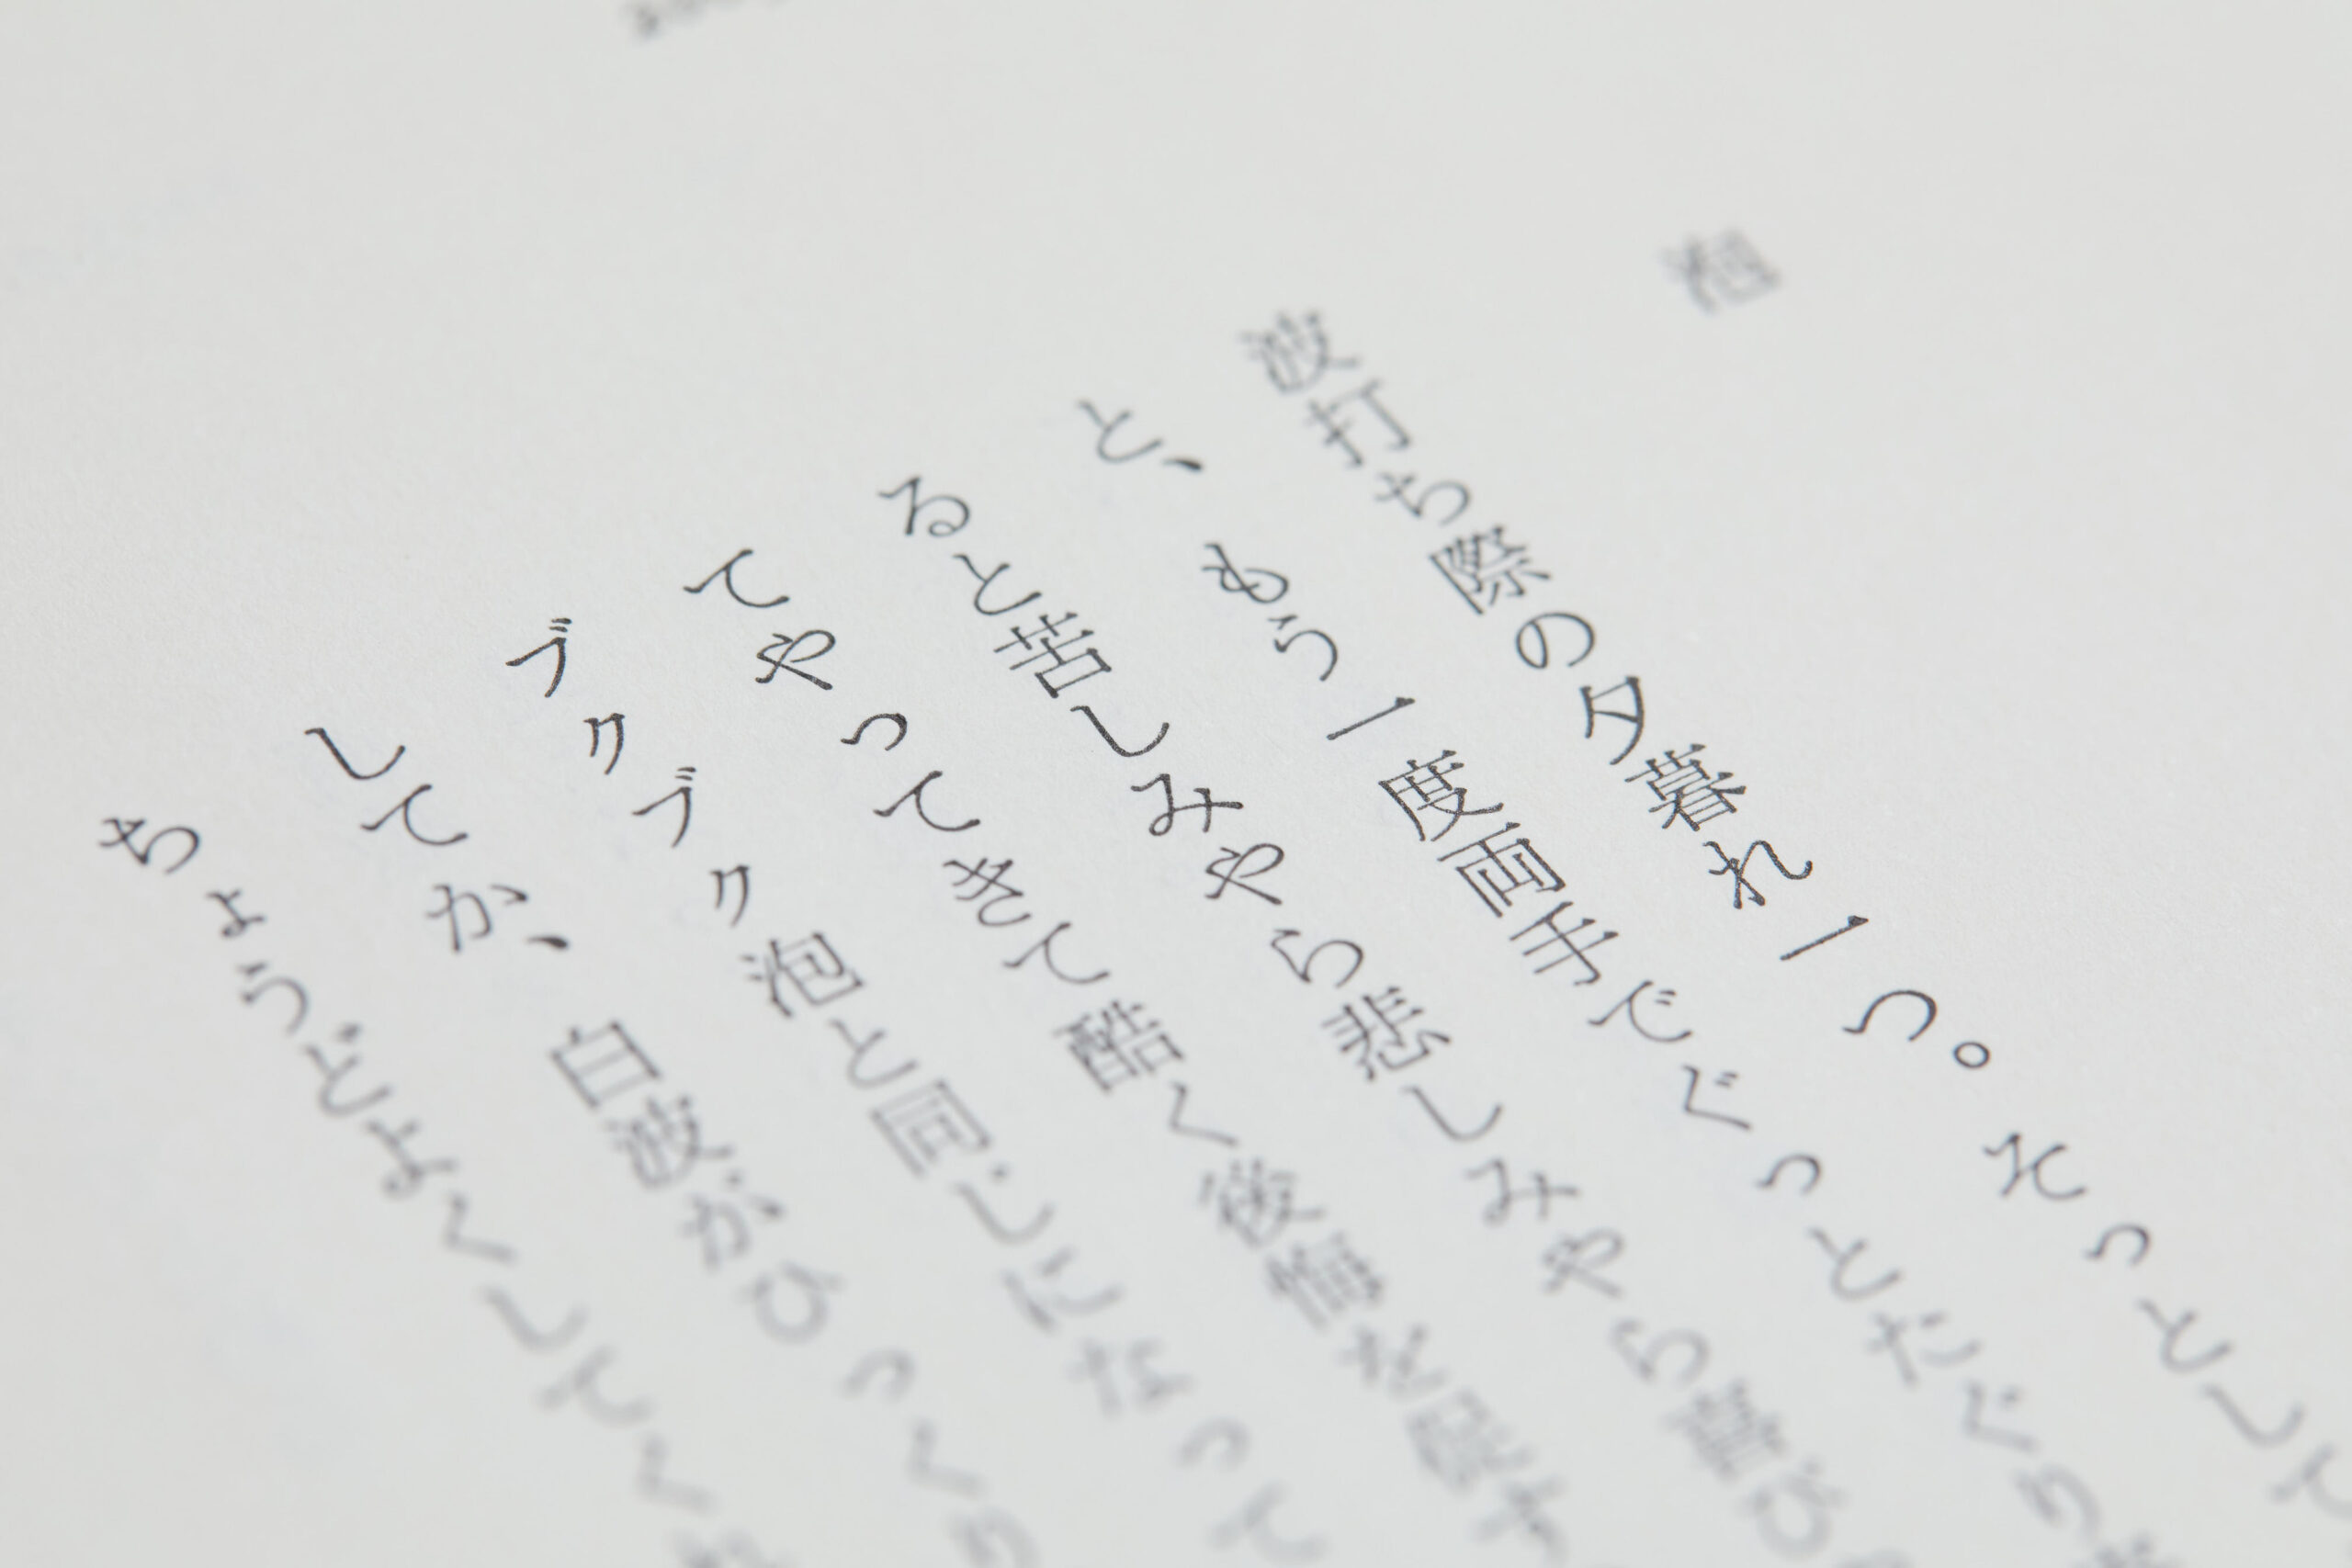 泡
波打ち際の夕暮れ一つ。そっとして
と、もう一度両手でぐっとたぐり
ると苦しみやら悲しみやら喜び
てやってきて酷く後悔を
ブクブク泡と同じになって
してか、白波がひっくり
ちょうどよくしてく